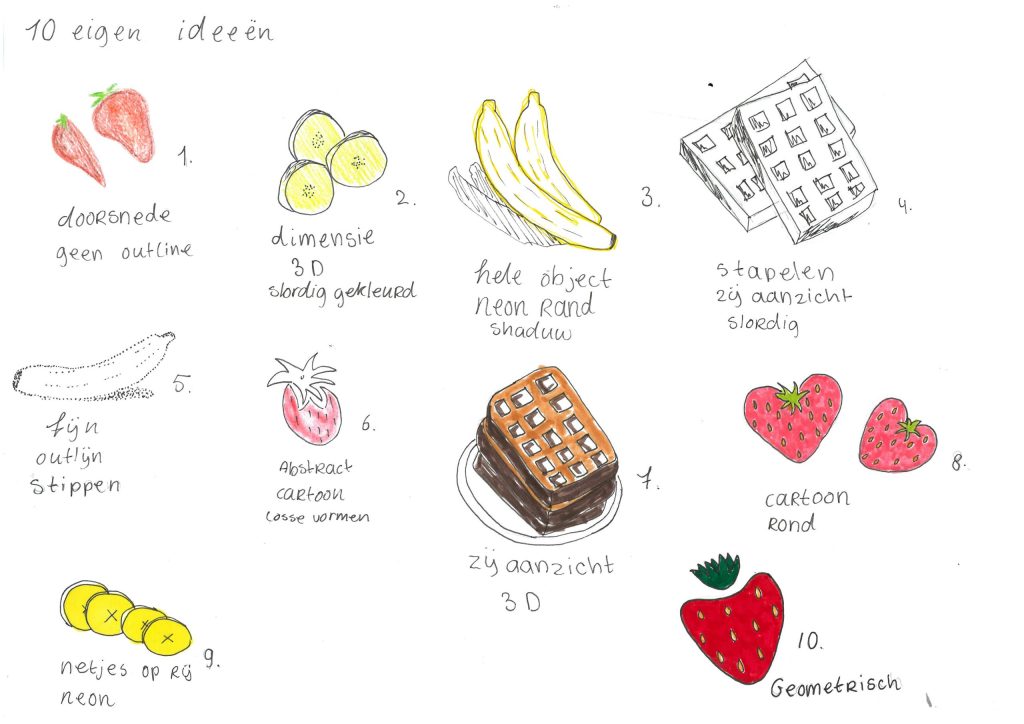 10 eigen ideeën
1.
doorsnede
geen outline
2.
dimensie
3D
slordig gekleurd
3.
hele object
neon rand
shaduw
4.
stapelen
zij aanzicht
slordig
5.
fijn
outlijn
stippen
6.
Abstract
cartoon
losse vormen
7.
zij aanzicht
3D
8.
cartoon
rond
9.
netjes op rij
neon
10.
Geometrisch